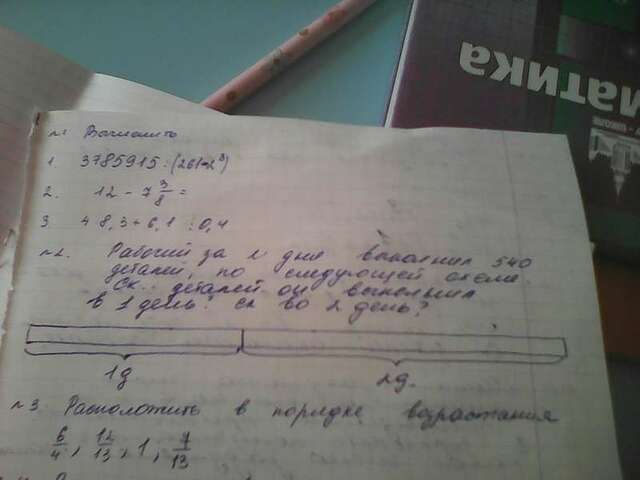 матика
№1 Вычислить
1. 3785915 : (261-2³)
2. 12 - 7 3/8 =
3 48,3 + 6,1 : 0,4
№2. Рабочий за 2 дня выполнил 540
деталей, по следующей схеме.
Ск. деталей он выполнил
в 1 день? ск во 2 день?
1д 2д.
№3 Расположить в порядке возрастания
6/4, 12/13, 1, 7/13